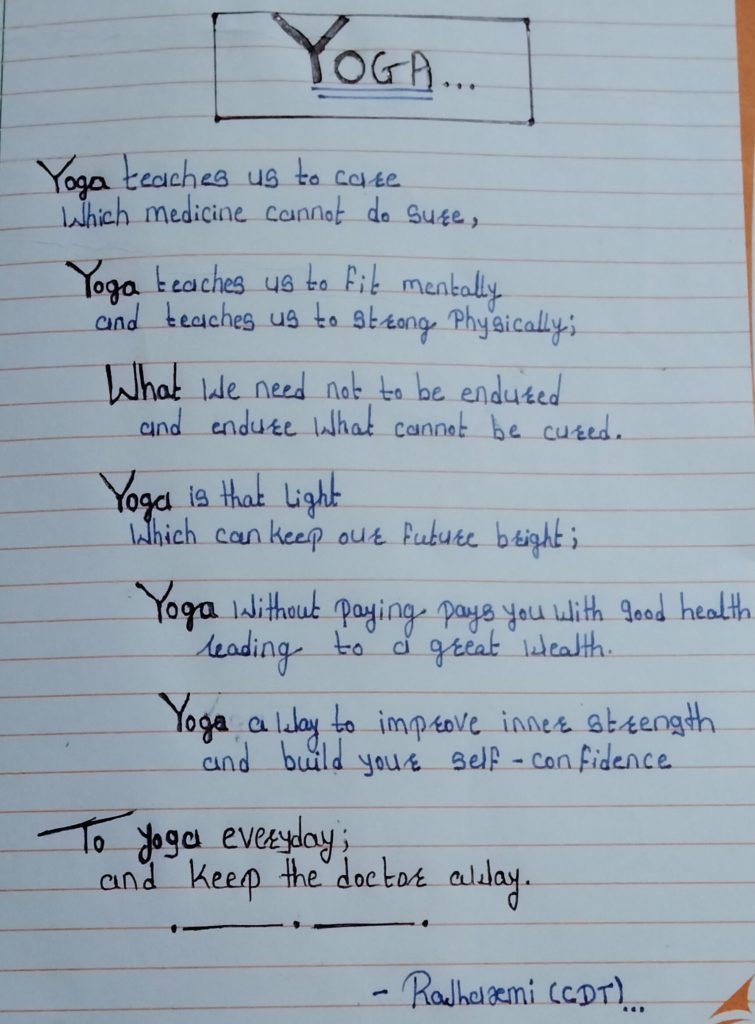 YOGA...
Yoga teaches us to care
Which medicine cannot do sure,
Yoga teaches us to fit mentally
and teaches us to strong Physically;
What We need not to be endured
and endure What cannot be cured.
Yoga is that Light
Which can keep our future bright;
Yoga Without paying pays you With good health
leading to a great Wealth.
Yoga a Way to improve inner strength
and build your self-confidence
To yoga everyday;
and keep the doctor away.
- (CDT)...